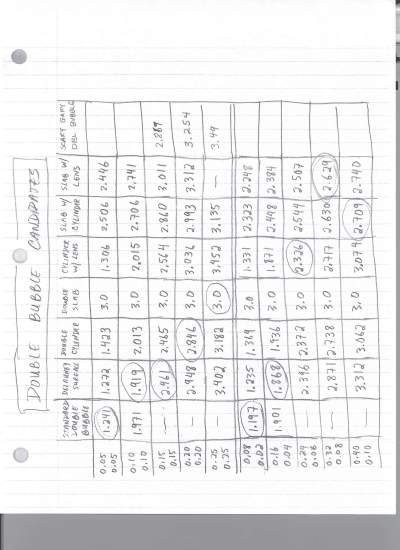 DOUBLE BUBBLE CANDIDATES
STANDARD DOUBLE BUBBLE DELAUNAY SURFACE DOUBLE CYLINDER DOUBLE SLAB CYLINDER W/ LENS SLAB W/ CYLINDER SLAB W/ LENS SCARY GARY DEL BUBBLE
0.05 0.05 1.241 1.272 1.423 3.0 1.306 2.506 2.446
0.10 0.10 1.971 1.919 2.013 3.0 2.015 2.706 2.741
0.15 0.15 — 2.461 2.465 3.0 2.564 2.860 3.011 2.869
0.20 0.20 — 2.948 2.846 3.0 3.036 2.993 3.312 3.254
0.25 0.25 — 3.402 3.182 3.0 3.452 3.135 — 3.49
0.08 0.02 1.197 1.235 1.369 3.0 1.331 2.323 2.248
0.16 0.04 1.901 1.868 1.936 3.0 1.871 2.448 2.384
0.24 0.06 — 2.346 2.372 3.0 2.326 2.544 2.507
0.32 0.08 — 2.871 2.738 3.0 2.717 2.630 2.629
0.40 0.10 — 3.312 3.062 3.0 3.074 2.709 2.740